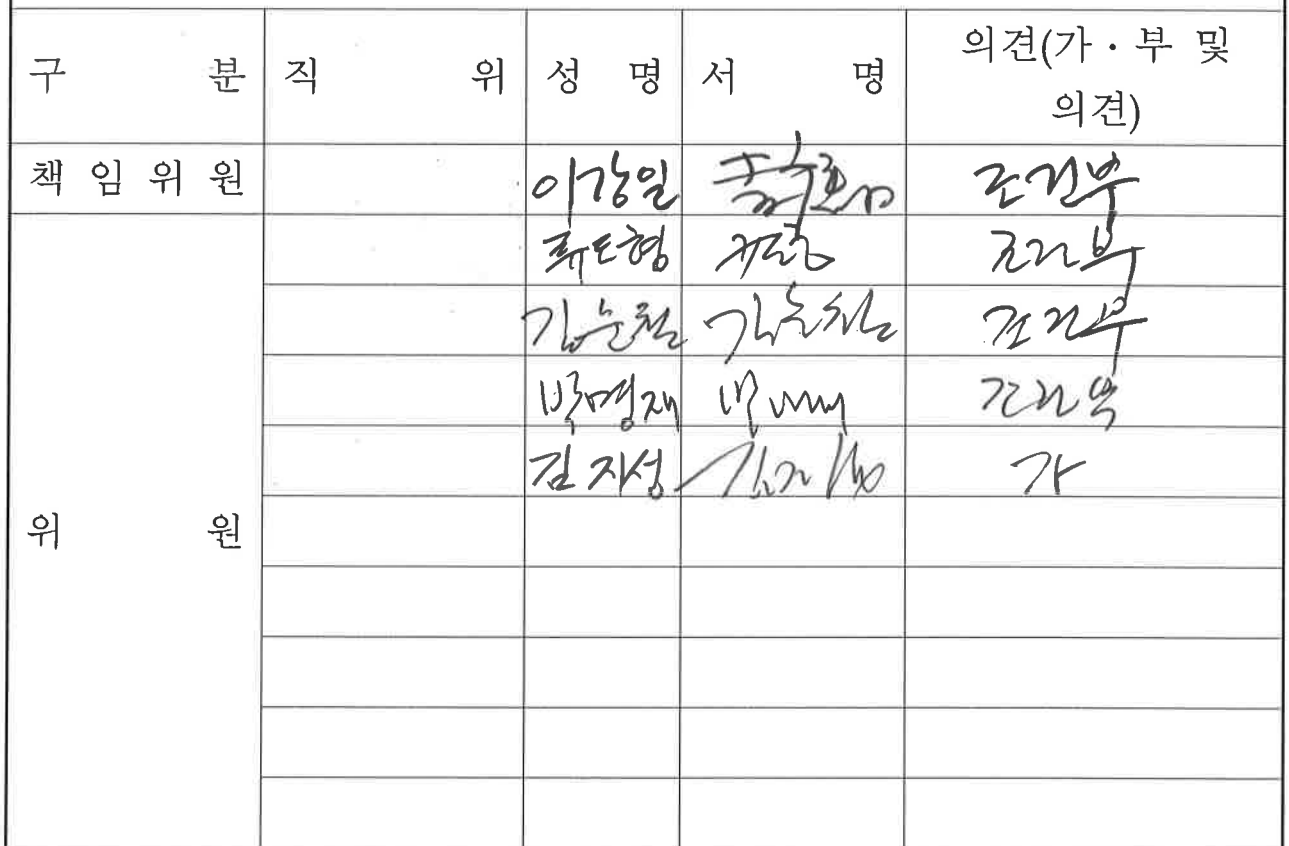 구 분 직 위 성 명 서 명 의견(가·부 및
의견)
책 임 위 원 이강일 조건부
류도형 조건부
김순철 김순철 조건부
박명재 조건부
김지성 가
위 원